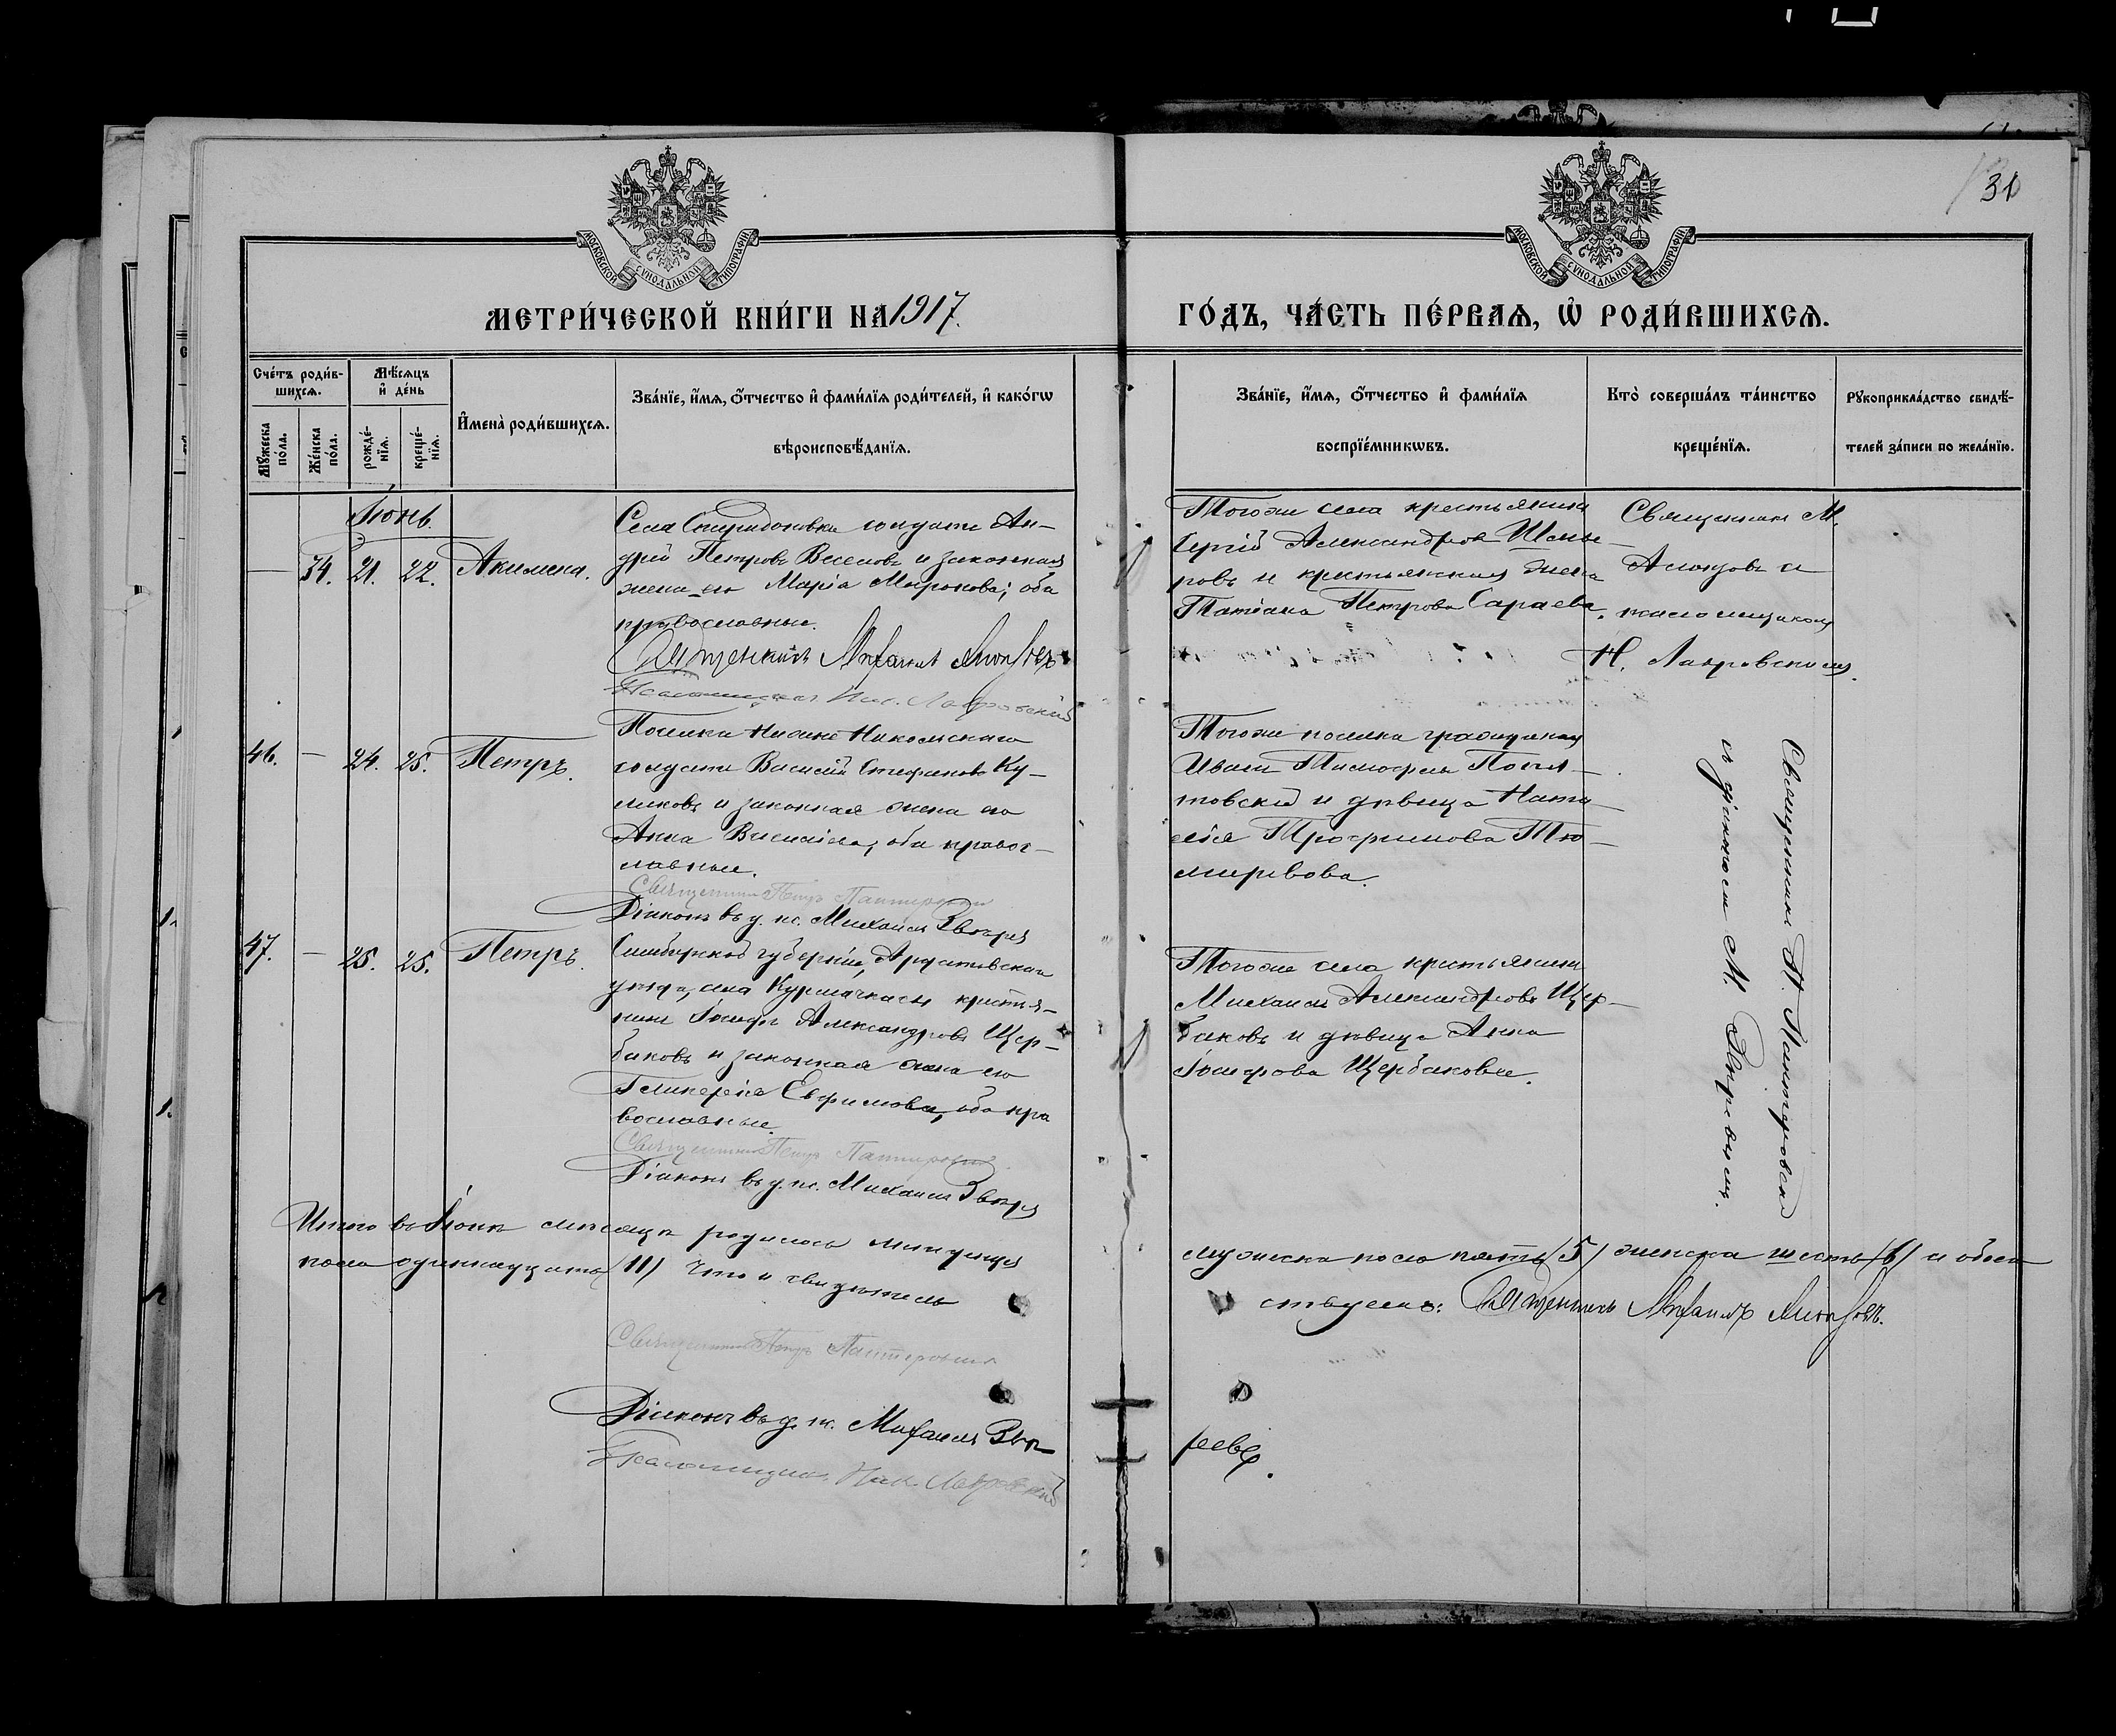 31
МОСКОВСКОЙ СѴНОДАЛЬНОЙ ТИПОГРАФІИ
МОСКОВСКОЙ СѴНОДАЛЬНОЙ ТИПОГРАФІИ
МЕТРИ́ЧЕСКОЙ КНИ́ГИ НА 1917.
ГО́ДЪ, ЧА́СТЬ ПЕ́РВАЯ, Ѡ РОДИ́ВШИХСЯ.
Сче́тъ роди́в-
шихся.
Мѣ́сяцъ
и҆ де́нь
Мꙋ́жеска
по́ла.
Же́нска
по́ла.
рожде́-
нїя.
креще́-
нїя.
И҆мена̀ роди́вшихся.
Зва́нїе, и҆́мя, ѻ҆́тчество и҆ фами́лїя роди́телей, и҆ како́гѡ
вѣроисповѣ́данїя.
Зва́нїе, и҆́мя, ѻ҆́тчество и҆ фами́лїя
воспрїе́мникѡвъ.
Кто̀ соверша́лъ та́инство
креще́нїя.
Рꙋкоприкла́дство свидѣ́-
телей за́писи по жела́нїю.
Іюнь.
— 34. 21. 22. Акилина.
Села Спиридоновки солдатъ Ан-
дрей Петровъ Веселовъ и законная
жена его Марія Миронова; оба
православные.
Священникъ Михаилъ
Псаломщикъ Ник. Лавровскій
Тогоже села крестьянинъ
Сергій Александровъ
ровъ и крестьянская жена
Татіана Петрова Сараева.
Священникъ М.
съ
псаломщикомъ
Н. Лавровскимъ.
46. — 24. 25. Петръ.
Поселка Никольскаго
солдатъ Василій Стефановъ Ку-
ликовъ и законная жена его
Анна Васильева, оба правос-
лавные.
Священникъ Петръ
Діаконъ въ д. пс. Михаилъ Звѣревъ
Тогоже поселка гражданинъ
Иванъ Тимофеевъ
товскій и дѣвица Ната-
лія Трофимова
47. — 25. 25. Петръ.
Симбирской губерніи, Ардатовскаго
уѣзда, села крестья-
нинъ Іосифъ Александровъ Щер-
баковъ и законная жена его
Гликерія Евфимова, оба пра
вославные.
Священникъ Петръ
Діаконъ въ д. пс. Михаилъ Звѣревъ
Тогоже села крестьянинъ
Михаилъ Александровъ Щер-
баковъ и дѣвица Анна
Іосифова Щербакова.
Священникъ П.
съ діакономъ М. Звѣревымъ.
Итого въ Іюнѣ мѣсяцѣ родилось младенцевъ
мужеска пола пять /5/ женска шесть /6/ и обоего
пола одиннадцать /11/ Что и свидѣтель
ствуемъ: Священникъ Михаилъ
Священникъ Петръ
Діаконъ въ д. пс. Михаилъ Звѣ-
ревъ.
Псаломщикъ Ник. Лавровскій